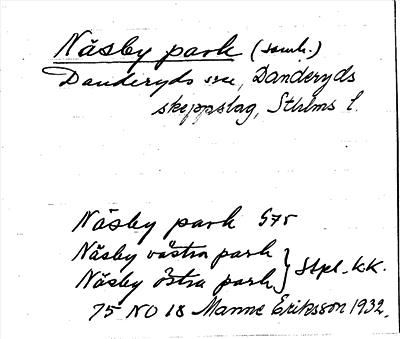 Näsby park (samh.)
Danderyds sn, Danderyds
skeppslag, Sthlms l.
Näsby park G75
Näsby västra park
Näsby östra park } Stpl. KK.
75 NO 18 Manne Eriksson 1932.